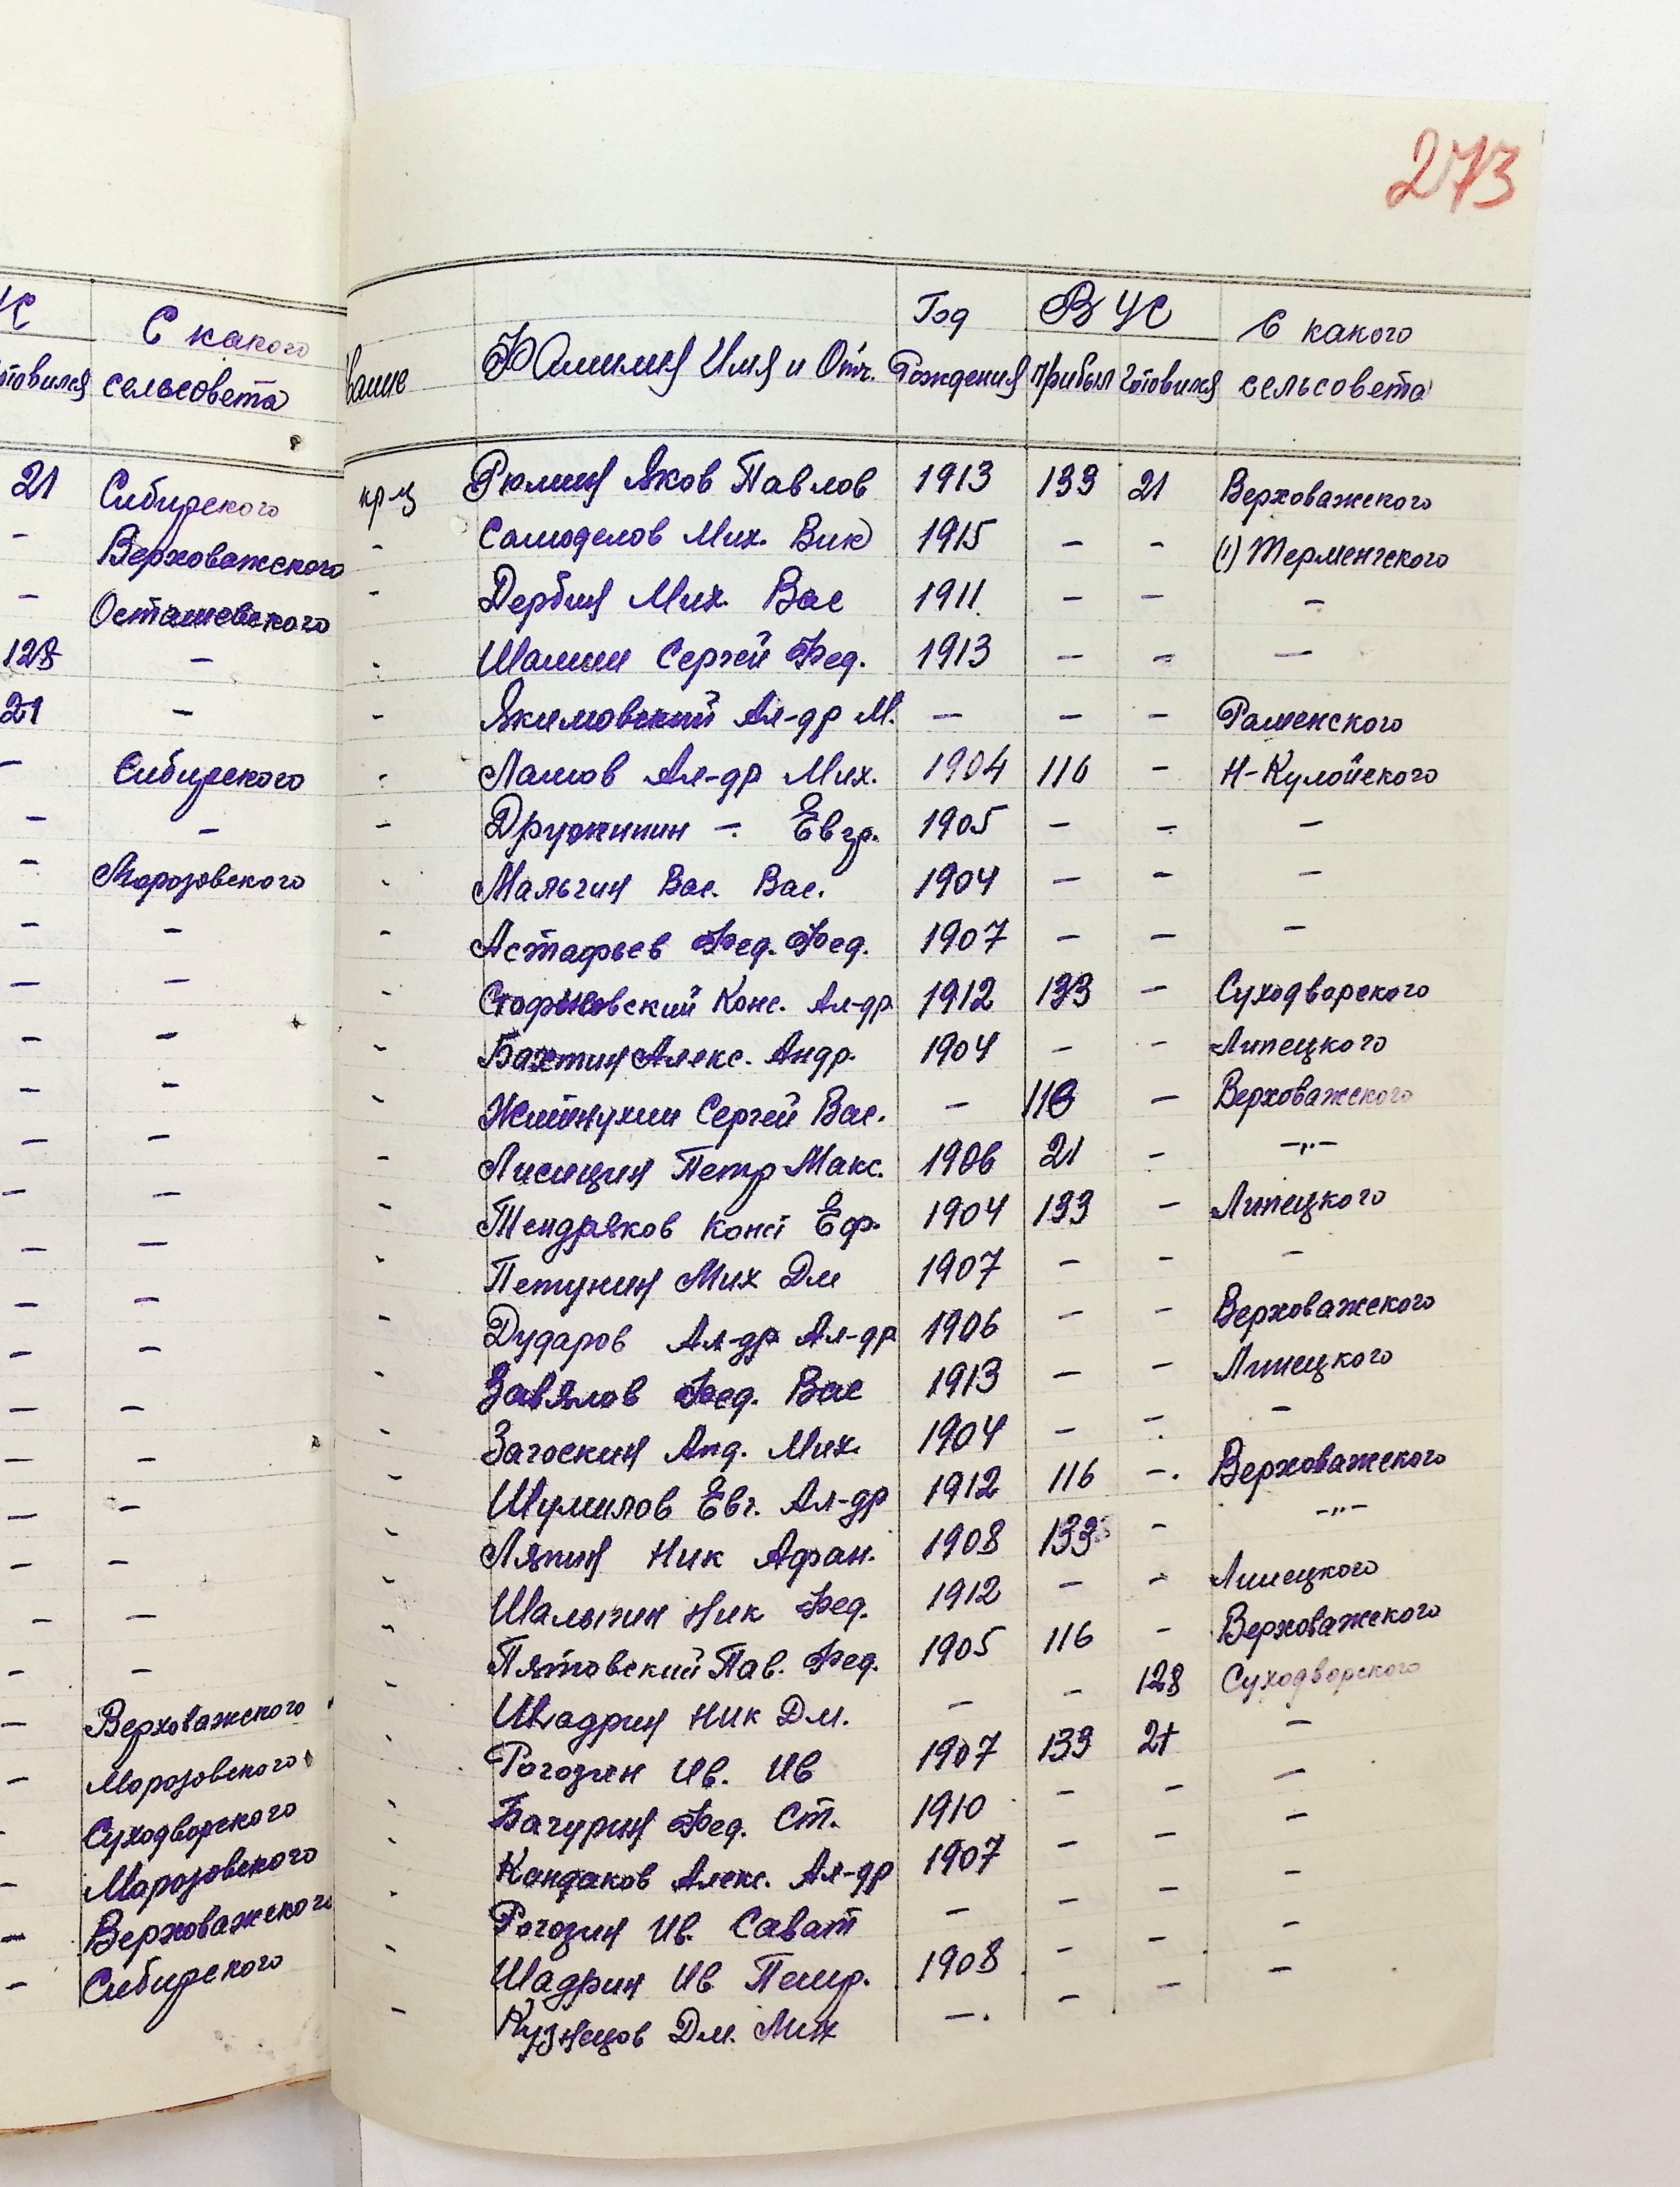 273
С какого
сельсовета
21 Сибирского
- Верховажского
- Осташевского
128 -
21 -
- Сибирского
- -
- Морозовского
- -
- -
- -
- -
- -
- -
- -
- -
- -
- -
- -
- -
- -
- -
- -
- Верховажского
- Морозовского
- Суходворского
- Морозовского
- Верховажского
- Сибирского
Фамилия Имя и Отч. Год Рождения ВУС прибыл готовился С какого сельсовета
кр-ц Рюмин Яков Павлов 1913 133 21 Верховажского
- Самоделов Мих. Вик 1915 - - (1) Терменгского
- Дербин Мих. Вас 1911 - - -
- Шамин Сергей Фед. 1913 - - -
- Якимовский Ал-др М. - - - Раменского
- Ламов Ал-др Мих. 1904 116 - Н-Кулойского
- Дружинин -. Евгр. 1905 - - -
- Мальгин Вас. Вас. 1904 - - -
- Астафьев Фед. Фед. 1907 - - -
- Конс. Ал-др 1912 133 - Суходворского
- Бахтин Алекс. Андр. 1904 - - Липецкого
- Сергей Вас. - 116 - Верховажского
- Лисицин Петр Макс. 1906 21 - -"-
- Тендряков Конс Еф. 1904 133 - Липецкого
- Петунин Мих Дм 1907 - - -
- Дударов Ал-др Ал-др 1906 - - Верховажского
- Завялов Фед. Вас 1913 - - Липецкого
- Загоскин Анд. Мих. 1904 - - -
- Шумилов Евг. Ал-др 1912 116 -. Верховажского
- Ляпин Ник Афан. 1908 133 - -"-
- Шалыгин Ник Фед. 1912 - - Липецкого
- Пятовский Пав. Фед. 1905 116 - Верховажского
- Шадрин Ник Дм. - - 128 Суходворского
- Рогозин Ив. Ив 1907 133 21 -
- Бачурин Фед. Ст. 1910 - - -
- Кандаков Алекс. Ал-др 1907 - - -
- Рогозин Ив. Сават - - - -
- Шадрин Ив Петр. 1908 - - -
- Кузнецов Дм. Мих -. - - -